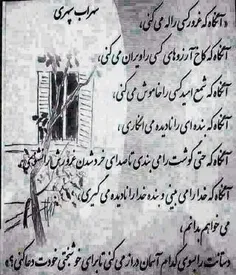 سهراب سپهری
«آنگاه که غرور کسی را له می کنی،
آنگاه که کاخ آرزوهای کسی را ویران می کنی،
آنگاه که شمع امید کسی را خاموش می کنی،
آنگاه که بنده ای را نادیده می انگاری،
آنگاه که حتی گوشت را می بندی تا صدای خرد شدن غرورش را نشنوی،
آنگاه که خدا را می بینی و بنده خدا را نادیده می گیری،
می خواهم بدانم،
دستانت را بسوی کدام آسمان دراز می کنی تا برای خوشبختی خودت دعا کنی؟»